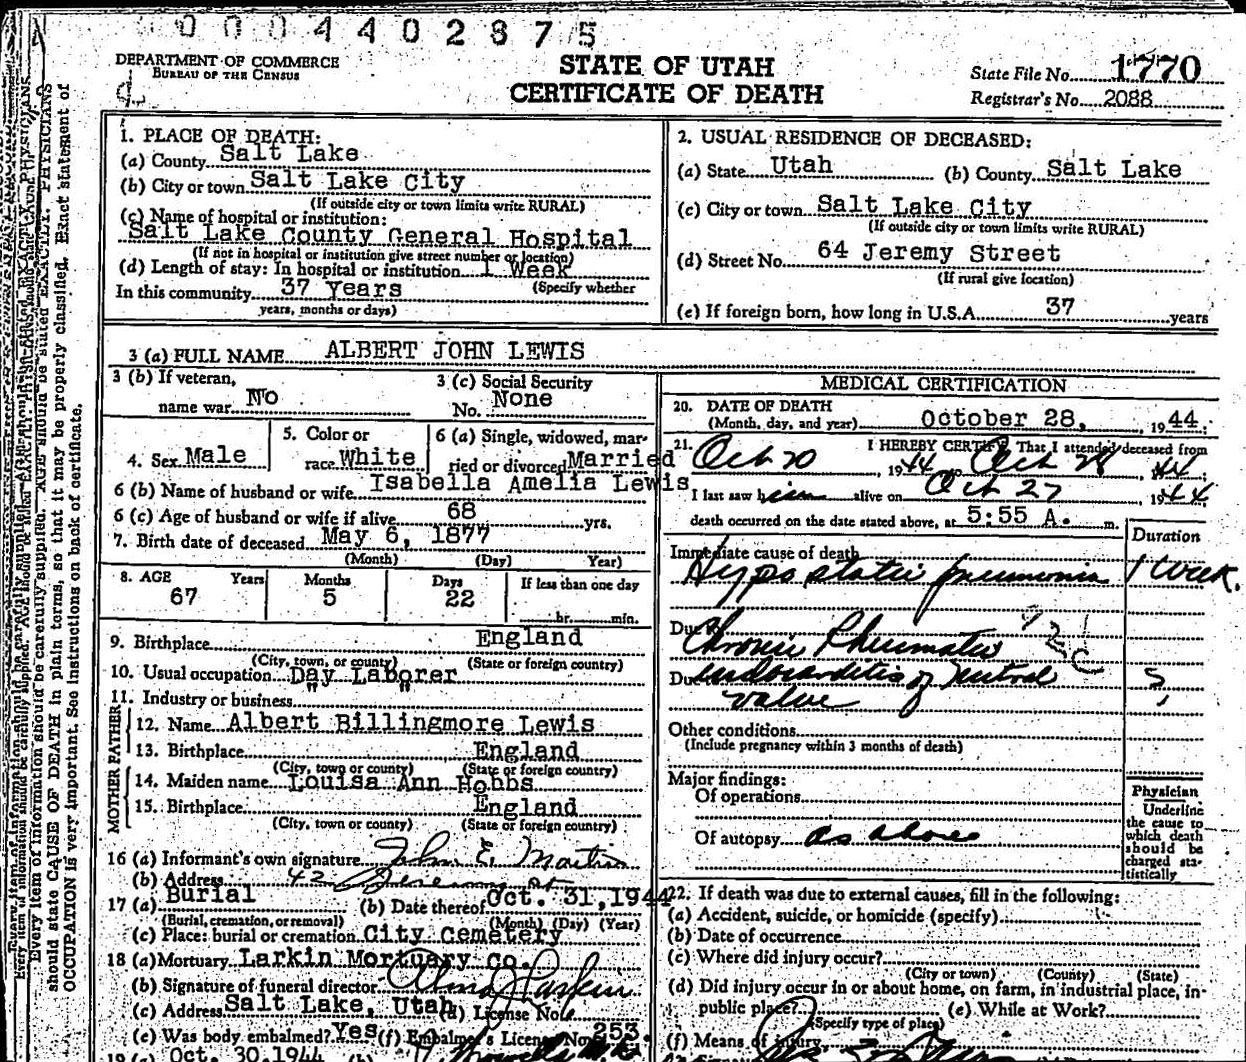 0 0 0 4 4 0 2 8 7 5
DEPARTMENT OF COMMERCE
BUREAU OF THE CENSUS
STATE OF UTAH
CERTIFICATE OF DEATH
State File No. 1770
Registrar's No. 2088
1. PLACE OF DEATH:
(a) County Salt Lake
(b) City or town Salt Lake City
(If outside city or town limits write RURAL)
(c) Name of hospital or institution:
Salt Lake County General Hospital
(If not in hospital or institution give street number or location)
(d) Length of stay: In hospital or institution 1 Week
(Specify whether
In this community 37 Years
years, months or days)
2. USUAL RESIDENCE OF DECEASED:
(a) State Utah (b) County Salt Lake
(c) City or town Salt Lake City
(If outside city or town limits write RURAL)
(d) Street No. 64 Jeremy Street
(If rural give location)
(e) If foreign born, how long in U.S.A. 37 years
3 (a) FULL NAME ALBERT JOHN LEWIS
3 (b) If veteran, name war No
3 (c) Social Security No. None
4. Sex Male
5. Color or race White
6 (a) Single, widowed, married or divorced Married
6 (b) Name of husband or wife Isabella Amelia Lewis
6 (c) Age of husband or wife if alive 68 yrs.
7. Birth date of deceased May 6, 1877
(Month) (Day) Year)
8. AGE Years Months Days If less than one day
67 5 22 hr. min.
9. Birthplace England
(City, town, or county) (State or foreign country)
10. Usual occupation Day Laborer
11. Industry or business " "
FATHER
12. Name Albert Billingmore Lewis
13. Birthplace England
(City, town or county) (State or foreign country)
MOTHER
14. Maiden name Louisa Ann Hobbs
15. Birthplace England
(City, town, or county) (State or foreign country)
16 (a) Informant's own signature John E. Martin
(b) Address 42 Jeremy St
17 (a) Burial (b) Date thereof Oct. 31, 1944
(Burial, cremation, or removal) (Month) (Day) (Year)
(c) Place: burial or cremation City Cemetery
18 (a) Mortuary Larkin Mortuary Co.
(b) Signature of funeral director Larkin
(c) Address Salt Lake, Utah (d) License No.
(e) Was body embalmed? Yes (f) Embalmer's License No. 253
19 (a) Oct. 30, 1944 (b)
MEDICAL CERTIFICATION
20. DATE OF DEATH
(Month, day, and year) October 28, 1944.
21. I HEREBY CERTIFY, That I attended deceased from
Oct 20, 1944 to Oct 28 44
I last saw him alive on Oct 27, 1944
death occurred on the date stated above, at 5:55 A. m.
Duration
Immediate cause of death
Hypostatic pneumonia 1 Week.
Due to
Chronic Rheumatic 92 c
Due endocarditis of mitral 5
valve
Other conditions
(Include pregnancy within 3 months of death)
Major findings:
Of operations
Of autopsy as above
Physician
Underline
the cause to
which death
should be
charged sta-
tistically
22. If death was due to external causes, fill in the following:
(a) Accident, suicide, or homicide (specify)
(b) Date of occurrence
(c) Where did injury occur?
(City or town) (County) (State)
(d) Did injury occur in or about home, on farm, in industrial place, in
public place? (e) While at Work?
(Specify type of place)
(f) Means of injury
should state CAUSE OF DEATH in plain terms, so that it may be properly classified. Exact statement of
OCCUPATION is very important. See instructions on back of certificate.